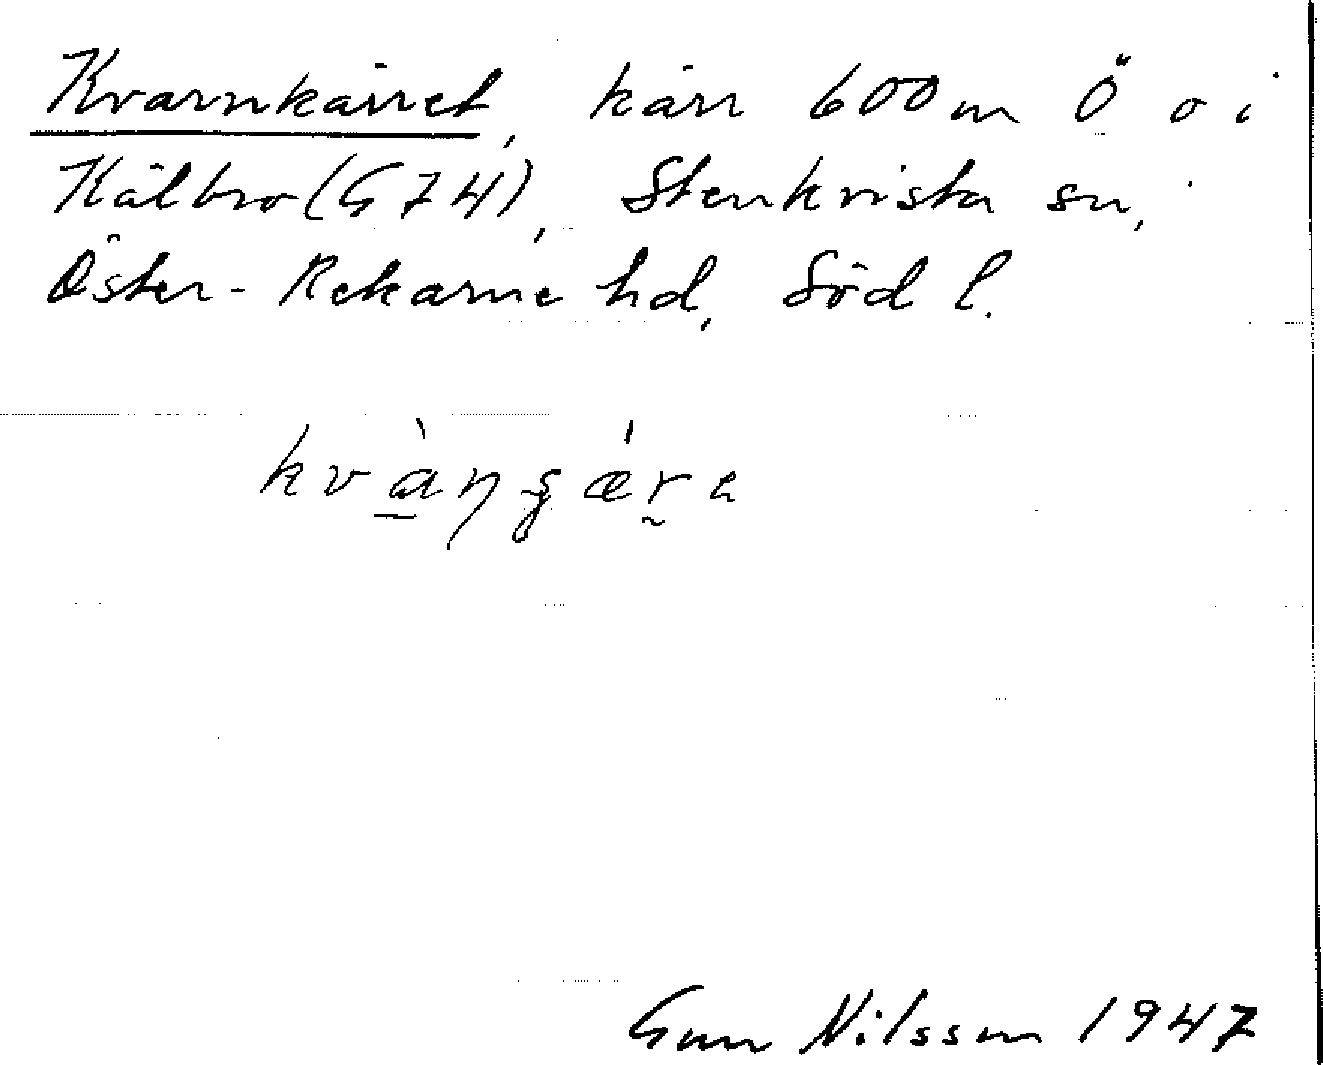 Kvarnkärret, kärr 600 m Ö o i
Kälbro (G 74), Stenkvista sn,
Öster-Rekarne hd, Söd l.
kvàŋgǽre
Gun Nilsson 1947